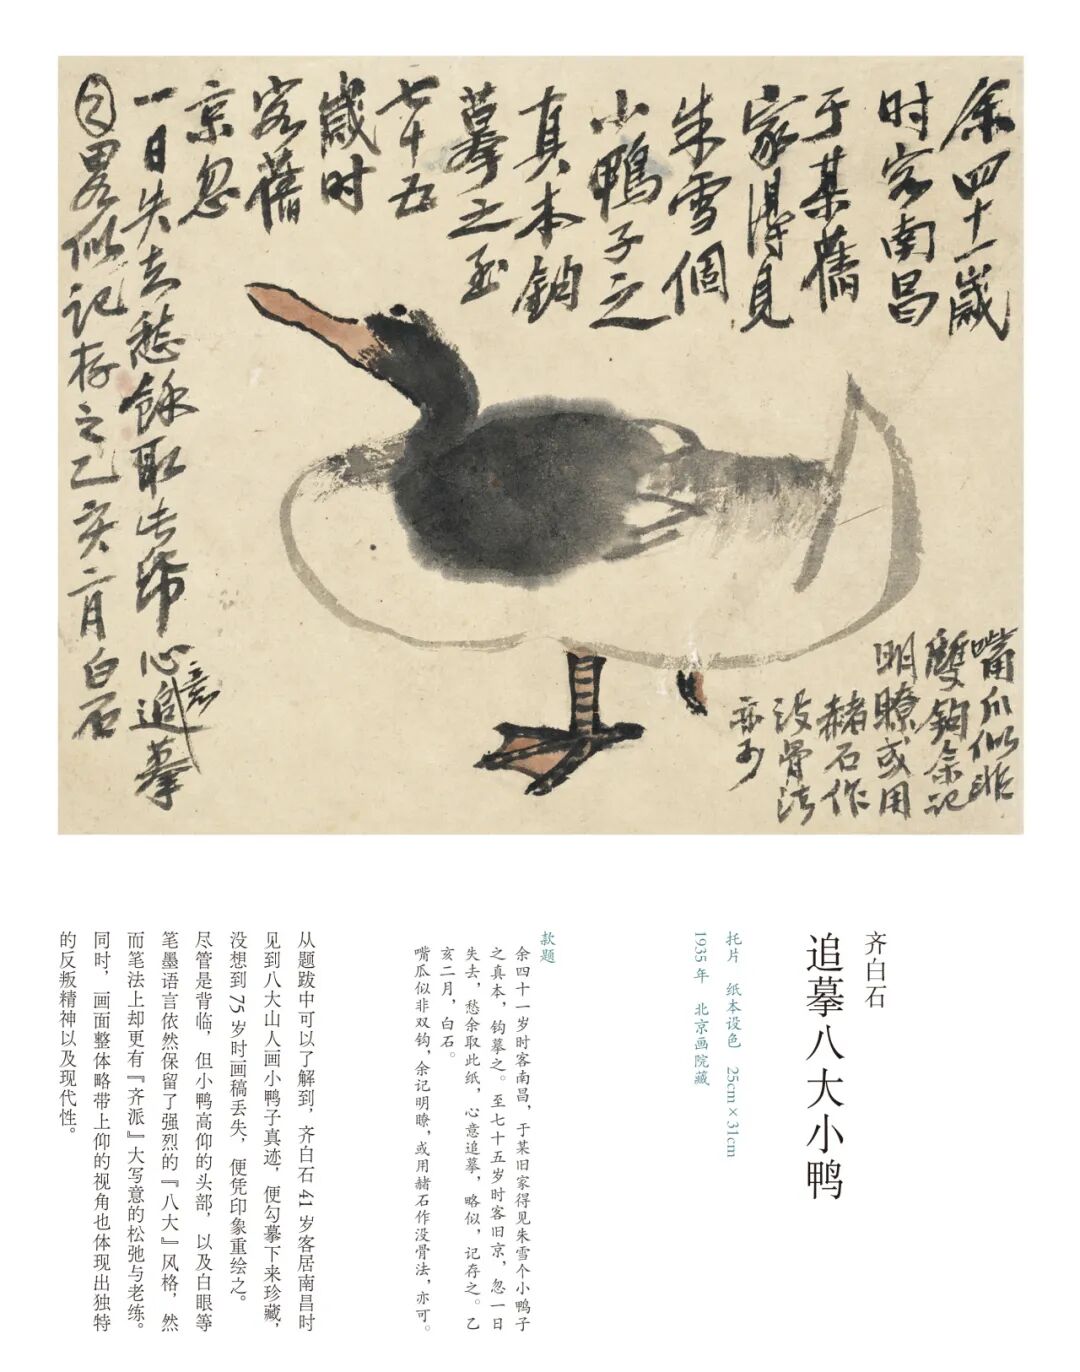 余四十一歲
时客南昌
于某舊
家得見
朱雪個
小鴨子之
真本鉤
摹之至
七十五
歲时
客舊
京忽
一日失去愁餘取此紙心意追摹
之畧似記存之乙亥二月白石
嘴爪似非
雙鉤余記
明瞭或用
赭石作
没骨法
亦可
齐白石
追摹八大小鸭
托片 纸本设色 25cm×31cm
1935年 北京画院藏
款题
余四十一岁时客南昌，于某旧家得见朱雪个小鸭子
之真本，钩摹之。至七十五岁时客旧京，忽一日
失去，愁余取此纸，心意追摹，略似，记存之。乙
亥二月，白石。
嘴瓜似非双钩，余记明瞭，或用赭石作没骨法，亦可。
从题跋中可以了解到，齐白石41岁客居南昌时
见到八大山人画小鸭子真迹，便勾摹下来珍藏，
没想到75岁时画稿丢失，便凭印象重绘之。
尽管是背临，但小鸭高仰的头部，以及白眼等
笔墨语言依然保留了强烈的『八大』风格，然
而笔法上却更有『齐派』大写意的松弛与老练。
同时，画面整体略带上仰的视角也体现出独特
的反叛精神以及现代性。